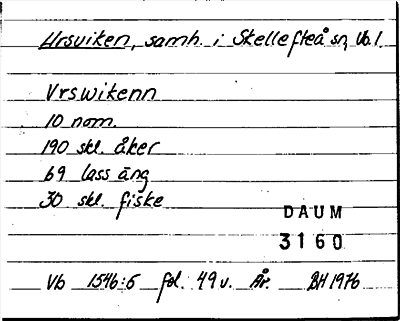 Ursviken, samh. i Skellefteå sn, Vb. l.
Vrswikenn
10 nom.
190 skl. åker
69 lass äng
30 skl. fiske
DAUM
3160
Vb 1546:6 fol. 49 v. År. BH 1976